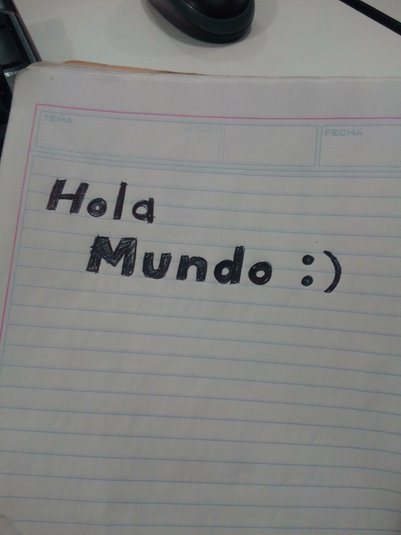 TEMA
FECHA
Hola
Mundo :)